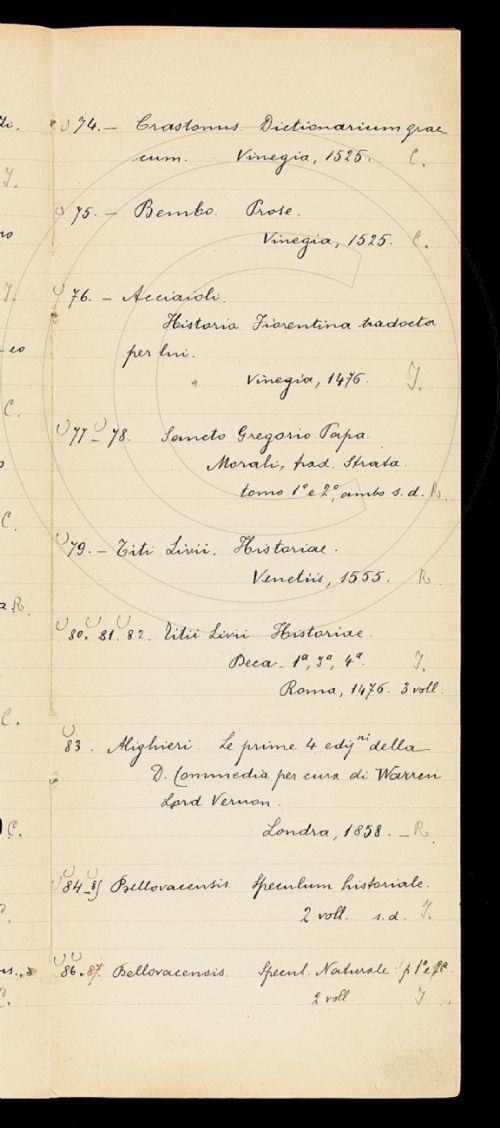 74. — Crastonus. Dictionarium grae
cum. Vinegia, 1525. C.
75. — Bembo. Prose.
Vinegia, 1525. C.
76. — Acciaioli.
Historia Fiorentina tradocta
per lui.
Vinegia, 1476. I.
77 - 78. Sancto Gregorio Papa.
Morali, trad. Strata.
tomo 1º e 2º, ambo s. d. R.
79. — Titi Livii. Historiae.
Venetiis, 1555. R
80. 81. 82. Titii Livii Historiae.
Deca. 1ª, 3ª, 4ª. I.
Roma, 1476. 3 voll.
83. Alighieri. Le prime 4 edijⁿⁱ della
D. Commedia per cura di Warren
Lord Vernon.
Londra, 1858. — R.
84-85 Bellovacensis. Speculum historiale.
2 voll. s. d. I.
86.87. Bellovacensis. Specul. Naturale p 1ª e 2ª.
2 voll. I